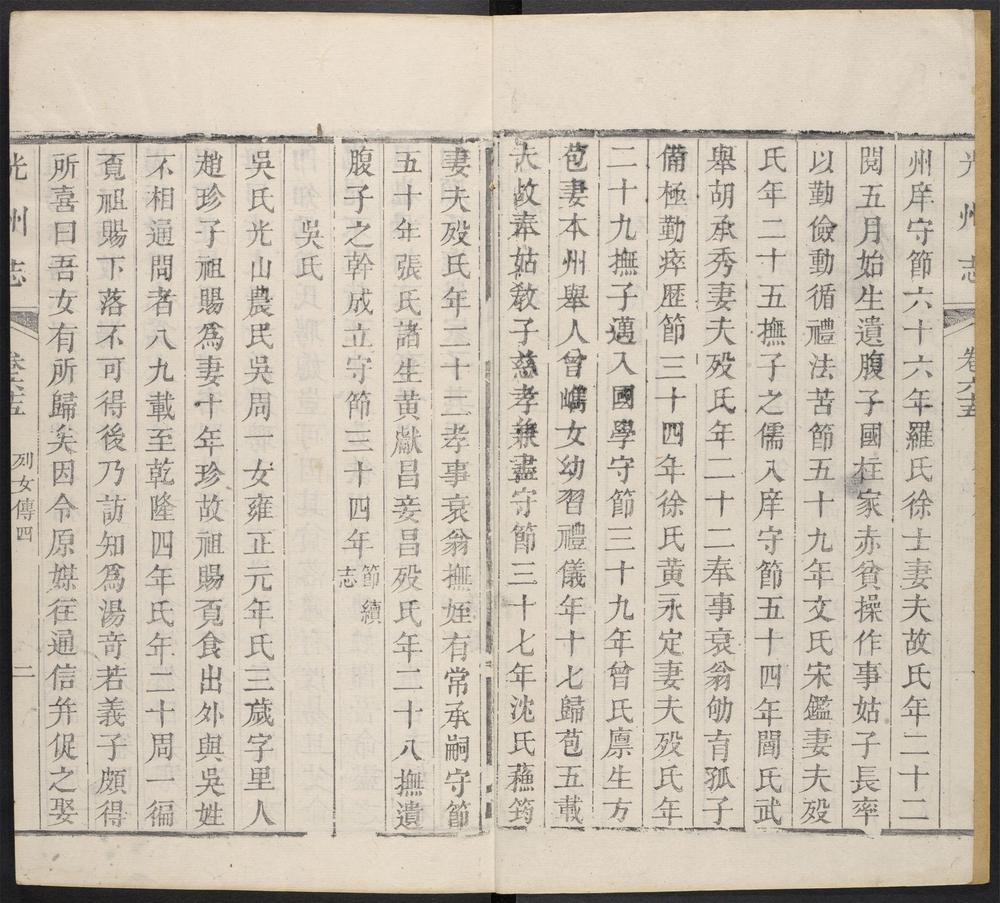 光州志 卷六十五
州庠守節六十六年羅氏徐士妻夫故氏年二十二
閱五月始生遺腹子國柱家赤貧操作事姑子長率
以勤儉動循禮法苦節五十九年文氏宋鑑妻夫歿
氏年二十五撫子之儒入庠守節五十四年閻氏武
舉胡承秀妻夫歿氏年二十二奉事衰翁劬育孤子
備極勤瘁歷節三十四年徐氏黃永定妻夫歿氏年
二十九撫子邁入國學守節三十九年曾氏廪生方
苞妻本州舉人曾嶲女幼習禮儀年十七歸苞五載
夫故奉姑敎子慈孝兼盡守節三十七年沈氏蘓筠
妻夫歿氏年二十三孝事衰翁撫姪有常承嗣守節
五十年張氏諸生黃獻昌妾昌歿氏年二十八撫遺
腹子之幹成立守節三十四年節續志
吳氏
吳氏光山農民吳周一女雍正元年氏三歲字里人
趙珍子祖賜爲妻十年珍故祖賜覓食出外與吳姓
不相通問者八九載至乾隆四年氏年二十周一徧
覓祖賜下落不可得後乃訪知爲湯竒若義子頗得
所喜曰吾女有所歸矣因令原媒徃通信并促之娶
光州志 卷六十五 列女傳四 二